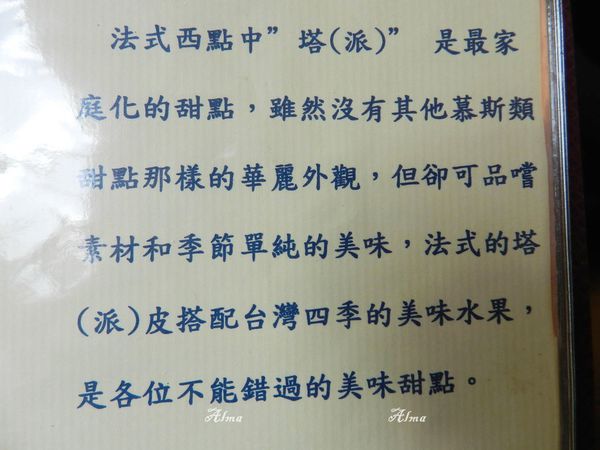 法式西點中”塔(派)” 是最家
庭化的甜點，雖然沒有其他慕斯類
甜點那樣的華麗外觀，但卻可品嚐
素材和季節單純的美味，法式的塔
(派)皮搭配台灣四季的美味水果，
是各位不能錯過的美味甜點。
Alma Alma